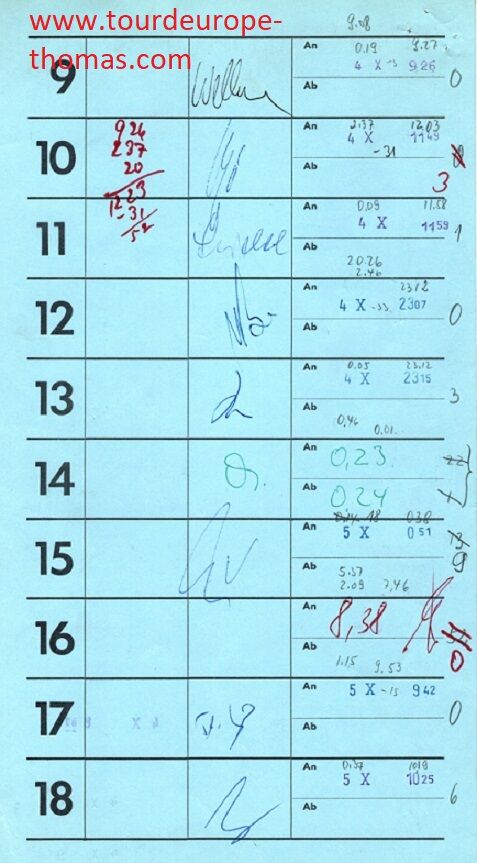 www.tourdeurope-
thomas.com
9.08
9
An 0.19 9.27
4 X -13 926
Ab
0
10
924
237
20
1223
-31
52
An 2.37 12.03
4 X 1149
-31
Ab
3
11
An 0.09 11.58
4 X 1159
Ab
1
20.26
2.46
12
An 2312
4 X -33 2307
Ab
0
13
An 0.05 23.12
4 X 2315
Ab
3
0,46 0.01
14
An 0,23
Ab 0,24
22
15
0.38
An 5 X 051
Ab
9
5.37
2.09 7,46
16
An 8,38
Ab
0
1.15 9.53
17
An 5 X -15 942
Ab
0
18
An 0.37 1019
5 X 1025
Ab
6